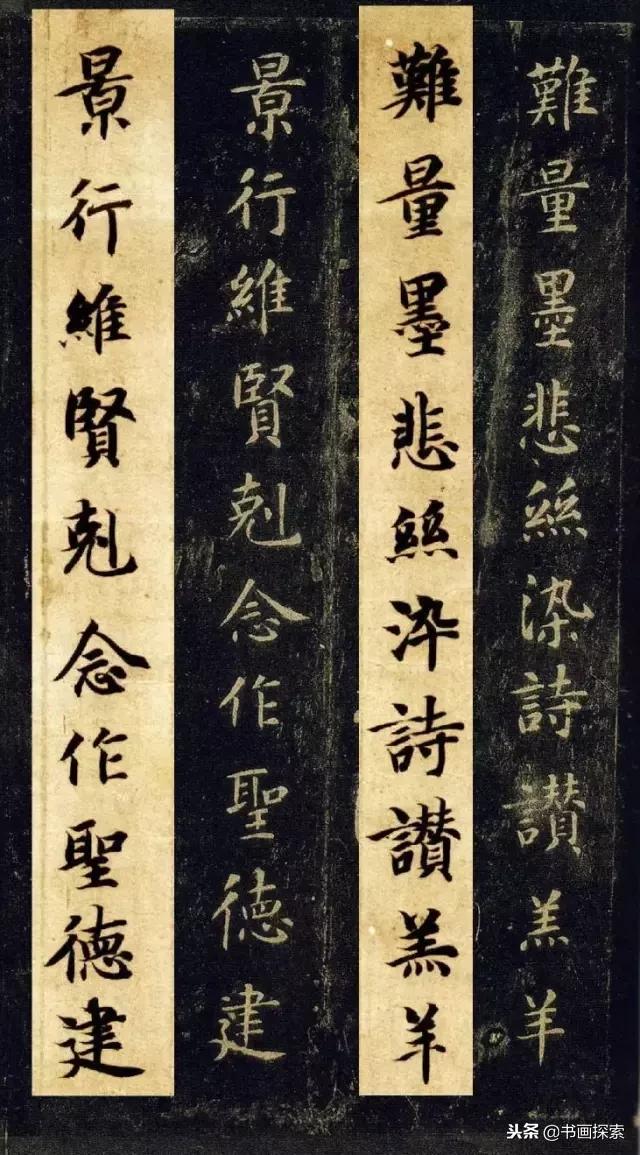 難量墨悲絲染詩讃羔羊
難量墨悲絲染詩讃羔羊
景行維賢剋念作聖德建
景行維賢剋念作聖德建
头条 @书画探索